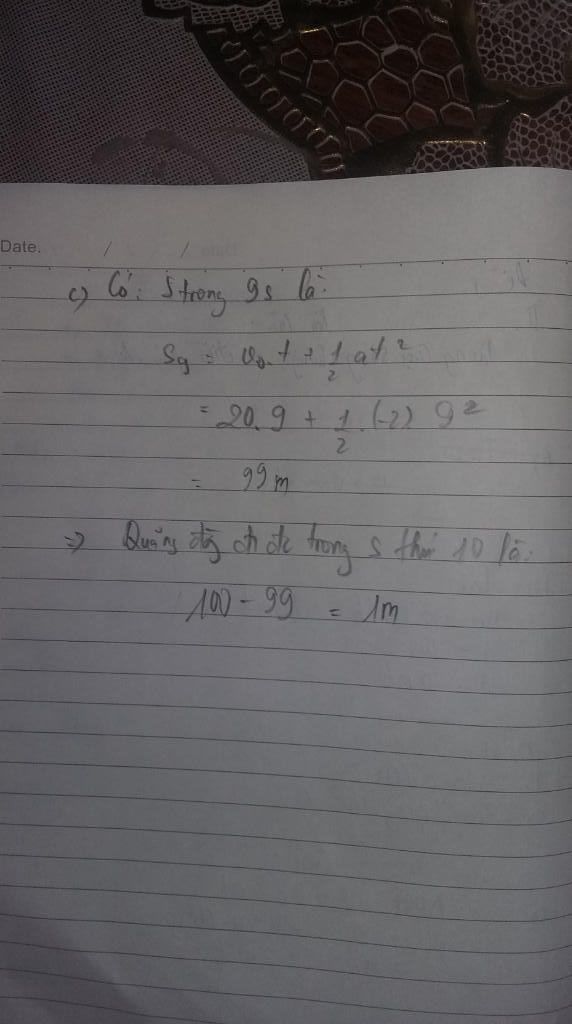 Date. / /
c) Có: S trong 9s là:
S₉ = v₀.t + 1/2 at²
= 20.9 + 1/2.(-2) 9²
= 99m
=> Quãng đg đi đc trong s thứ 10 là:
100 - 99 = 1m